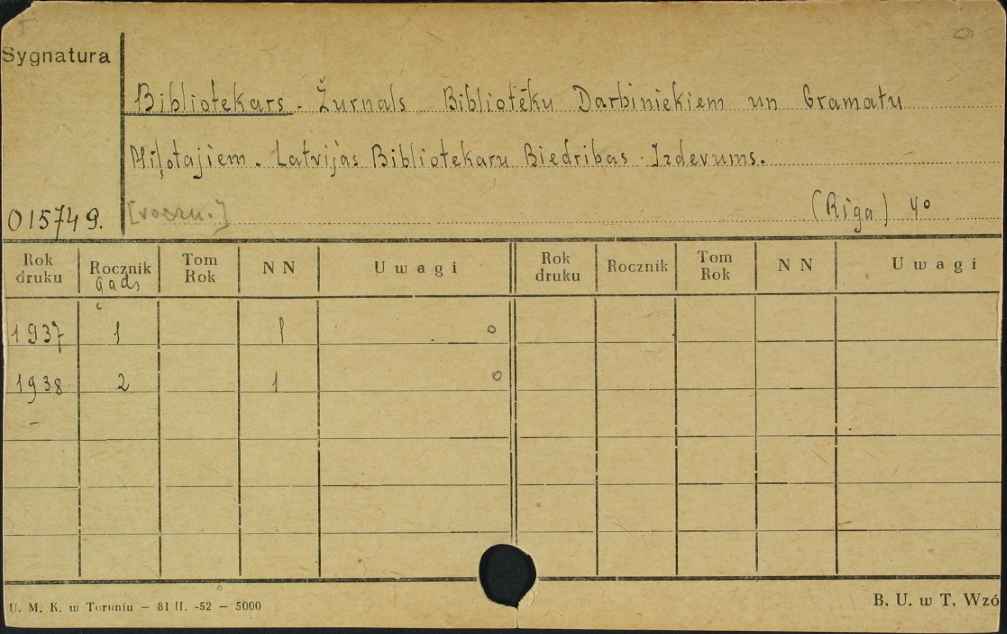 Sygnatura
Bibliotekars. Žurnals Bibliotēku Darbiniekiem un Gramatu
Miļotajiem. Latvijas Bibliotekaru Biedribas Izdevums.
015749.
(Rīga) 4°
Rok druku Rocznik Tom Rok NN Uwagi Rok druku Rocznik Tom Rok NN Uwagi
Gads
1937 1 1
1938 2 1
U. M. K. w Toruniu — 81 II. -52 — 5000
B. U. w T. Wzó